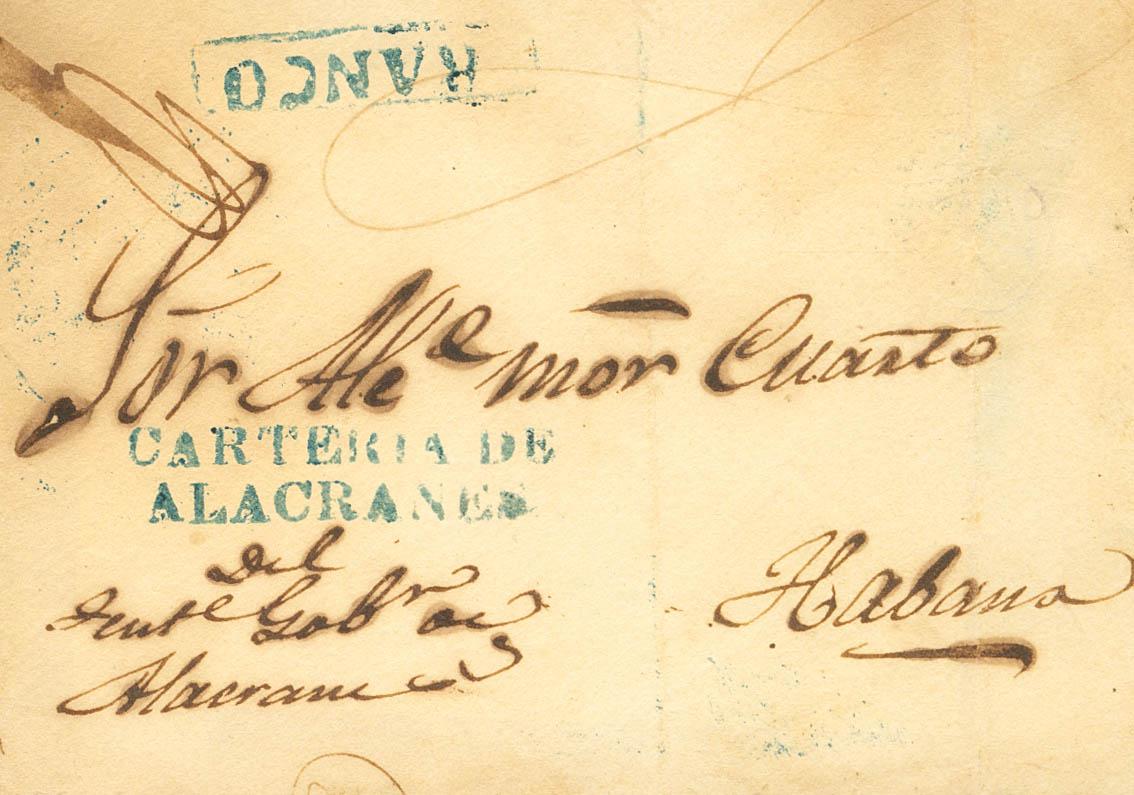 FRANCO
Sor Alc.e mor Cuarto
CARTERIA DE
ALACRANES
Del
Tente Gobr de
Alacranes
Habana